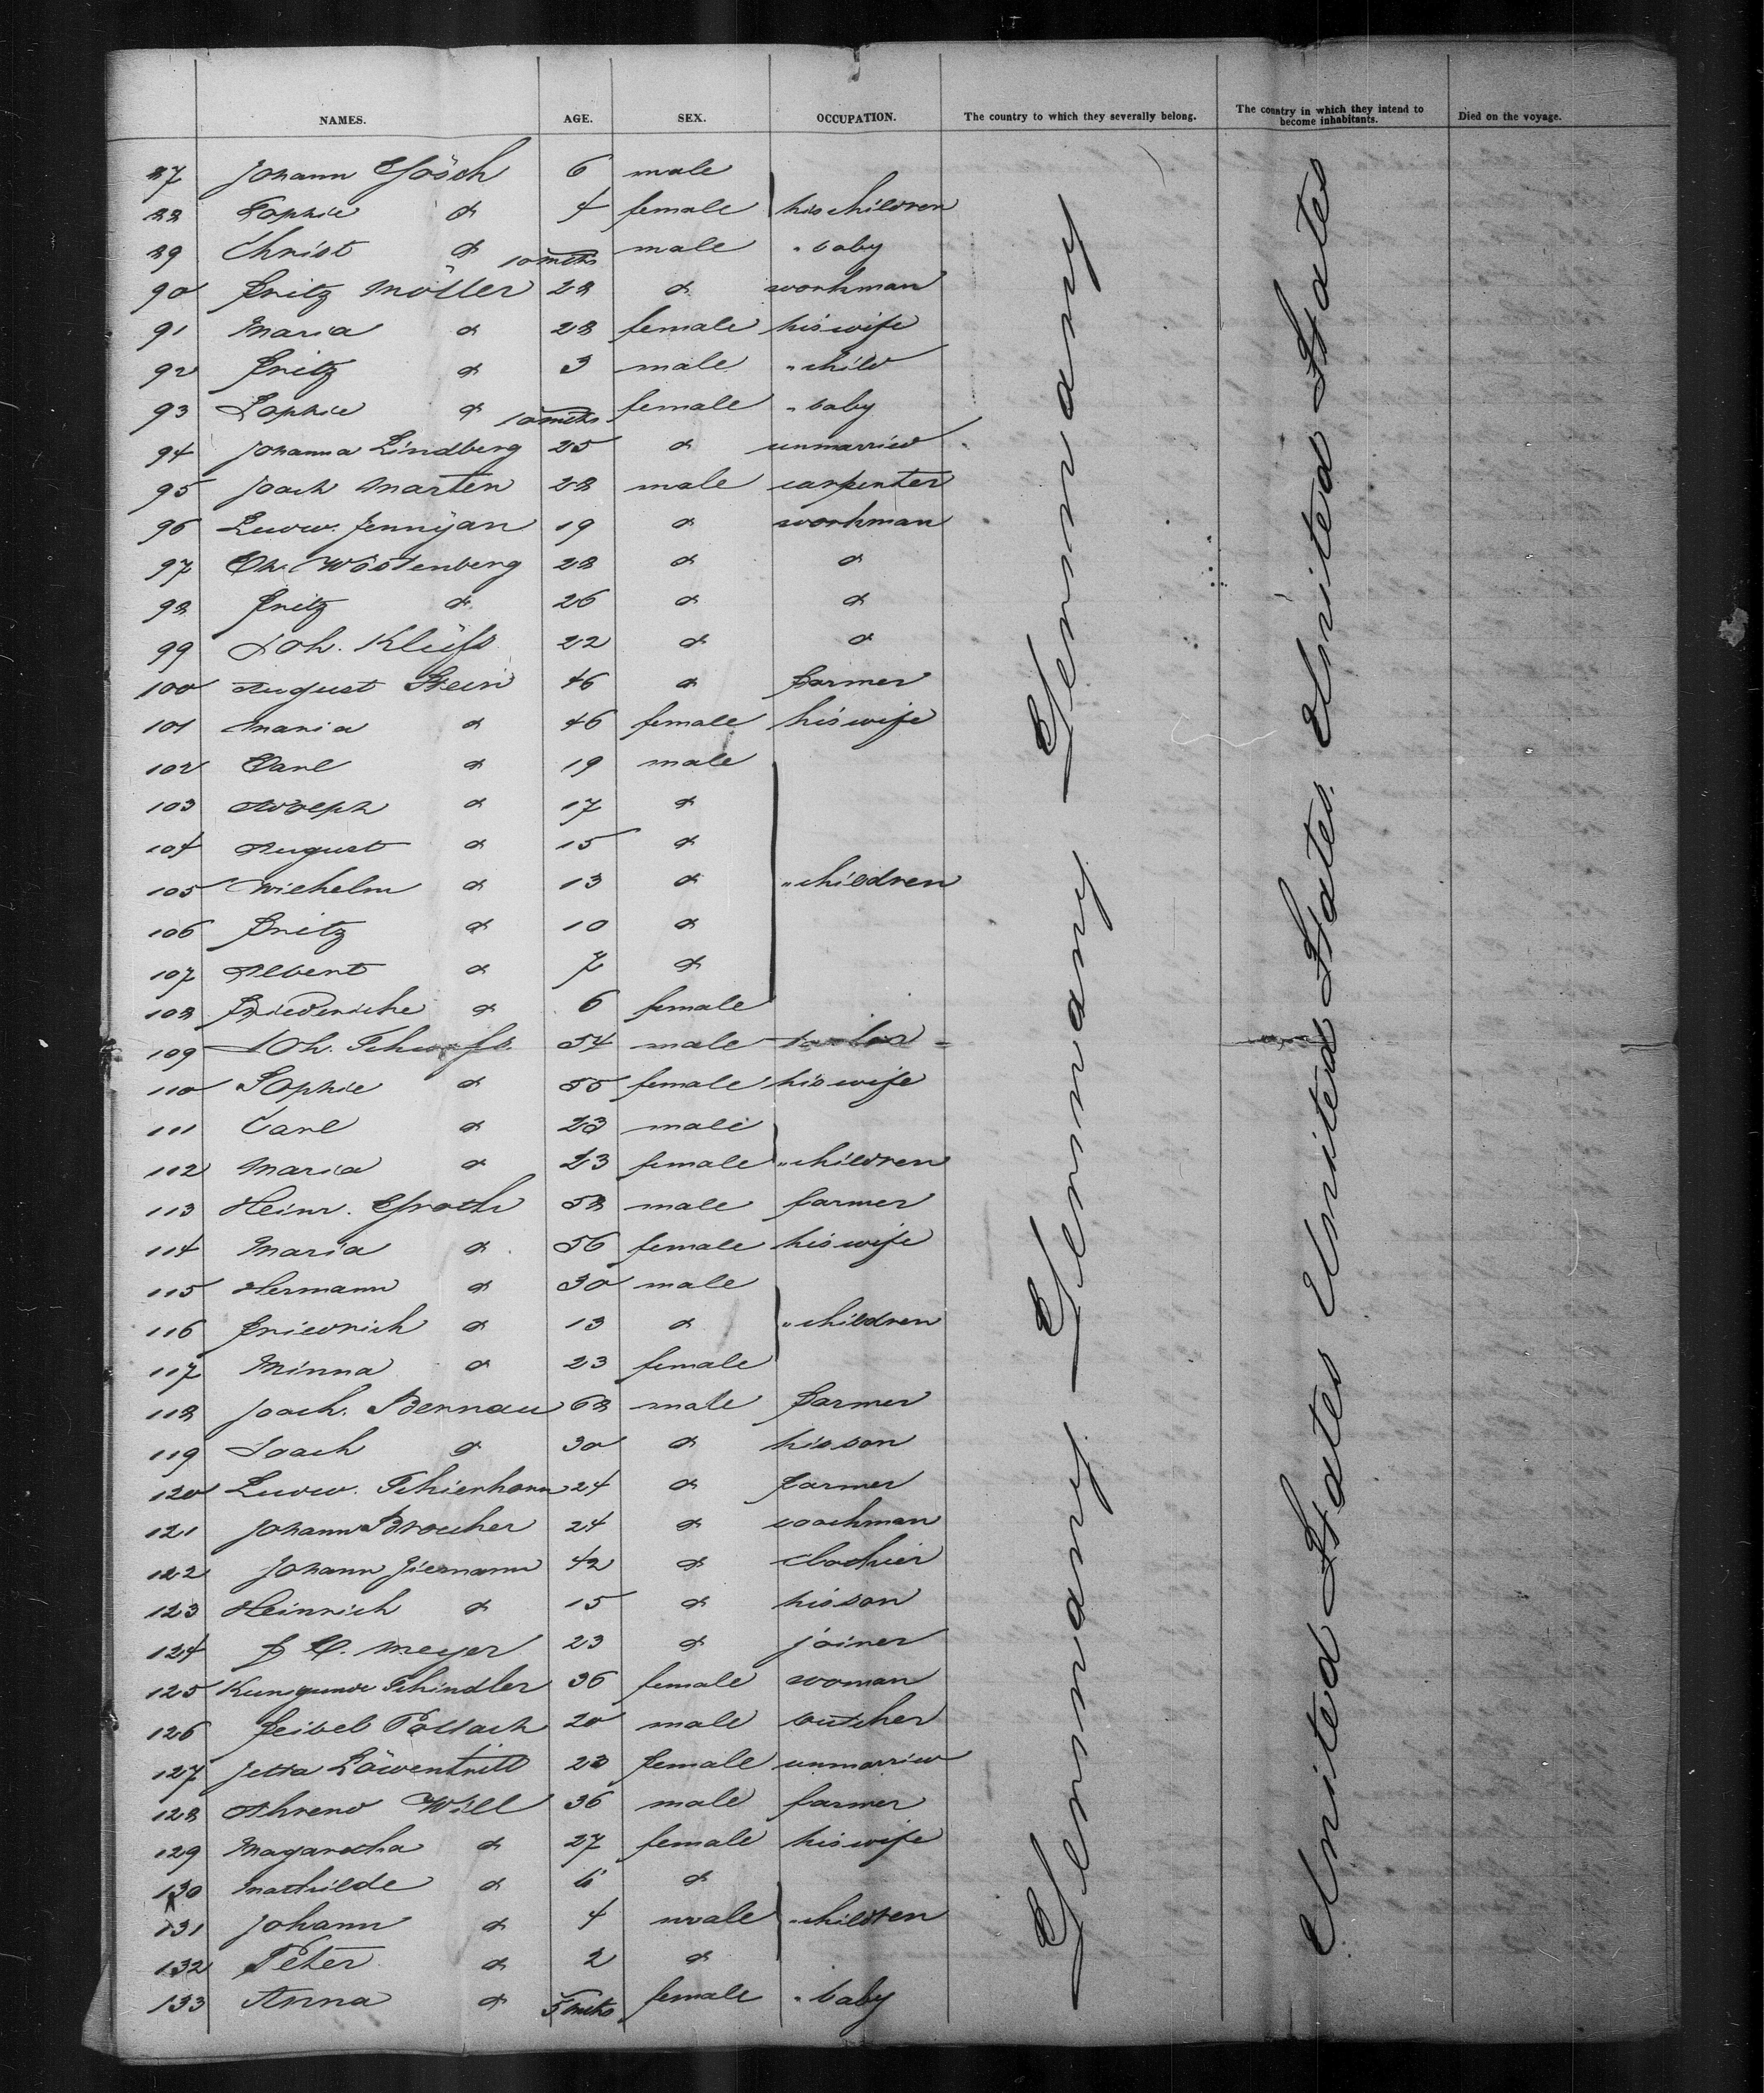 NAMES. AGE. SEX. OCCUPATION. The country to which they severally belong. The country in which they intend to become inhabitants. Died on the voyage.
87 Johann Gösch 6 male
88 Sophie do 4 female his children
89 Christ do 10 mths male " baby
90 Fritz Möller 28 do workman
91 Maria do 28 female his wife
92 Fritz do 3 male " child
93 Sophie do 10 mths female " baby
94 Johanna Lindberg 25 do unmarried
95 Joach Marten 28 male carpenter
96 Ludw. Jennyan 19 do workman
97 Ch. Wöstenberg 28 do do
98 Fritz do 26 do do
99 Joh. Klüfs 22 do do
100 August Stein 46 do farmer
101 Maria do 46 female his wife
102 Carl do 19 male
103 Adolph do 17 do
104 August do 15 do
105 Wilhelm do 13 do " children
106 Fritz do 10 do
107 Albert do 7 do
108 Friederiche do 6 female
109 Joh. 54 male
110 Sophie do 55 female his wife
111 Carl do 23 male
112 Maria do 23 female " children
113 Heinr. Groth 58 male farmer
114 Maria do 56 female his wife
115 Hermann do 30 male
116 Friedrich do 13 do " children
117 Minna do 23 female
118 Joach. Bernau 68 male farmer
119 Joach do 30 do his son
120 Ludw. Schierhorn 24 do farmer
121 Johann Broucher 24 do coachman
122 Johann Ziemann 42 do
123 Heinrich do 15 do his son
124 F C. Meyer 23 do joiner
125 Kunigunde Schindler 36 female woman
126 Feibel Pollack 20 male butcher
127 Jetta Löwentritt 23 female unmarried
128 Ahrend Will 36 male farmer
129 Magaretha do 27 female his wife
130 Mathilde do 6 do
131 Johann do 4 male " children
132 Peter do 2 do
133 Anna do 5 mths female " baby
Germany Germany Germany Germany
United States United States United States